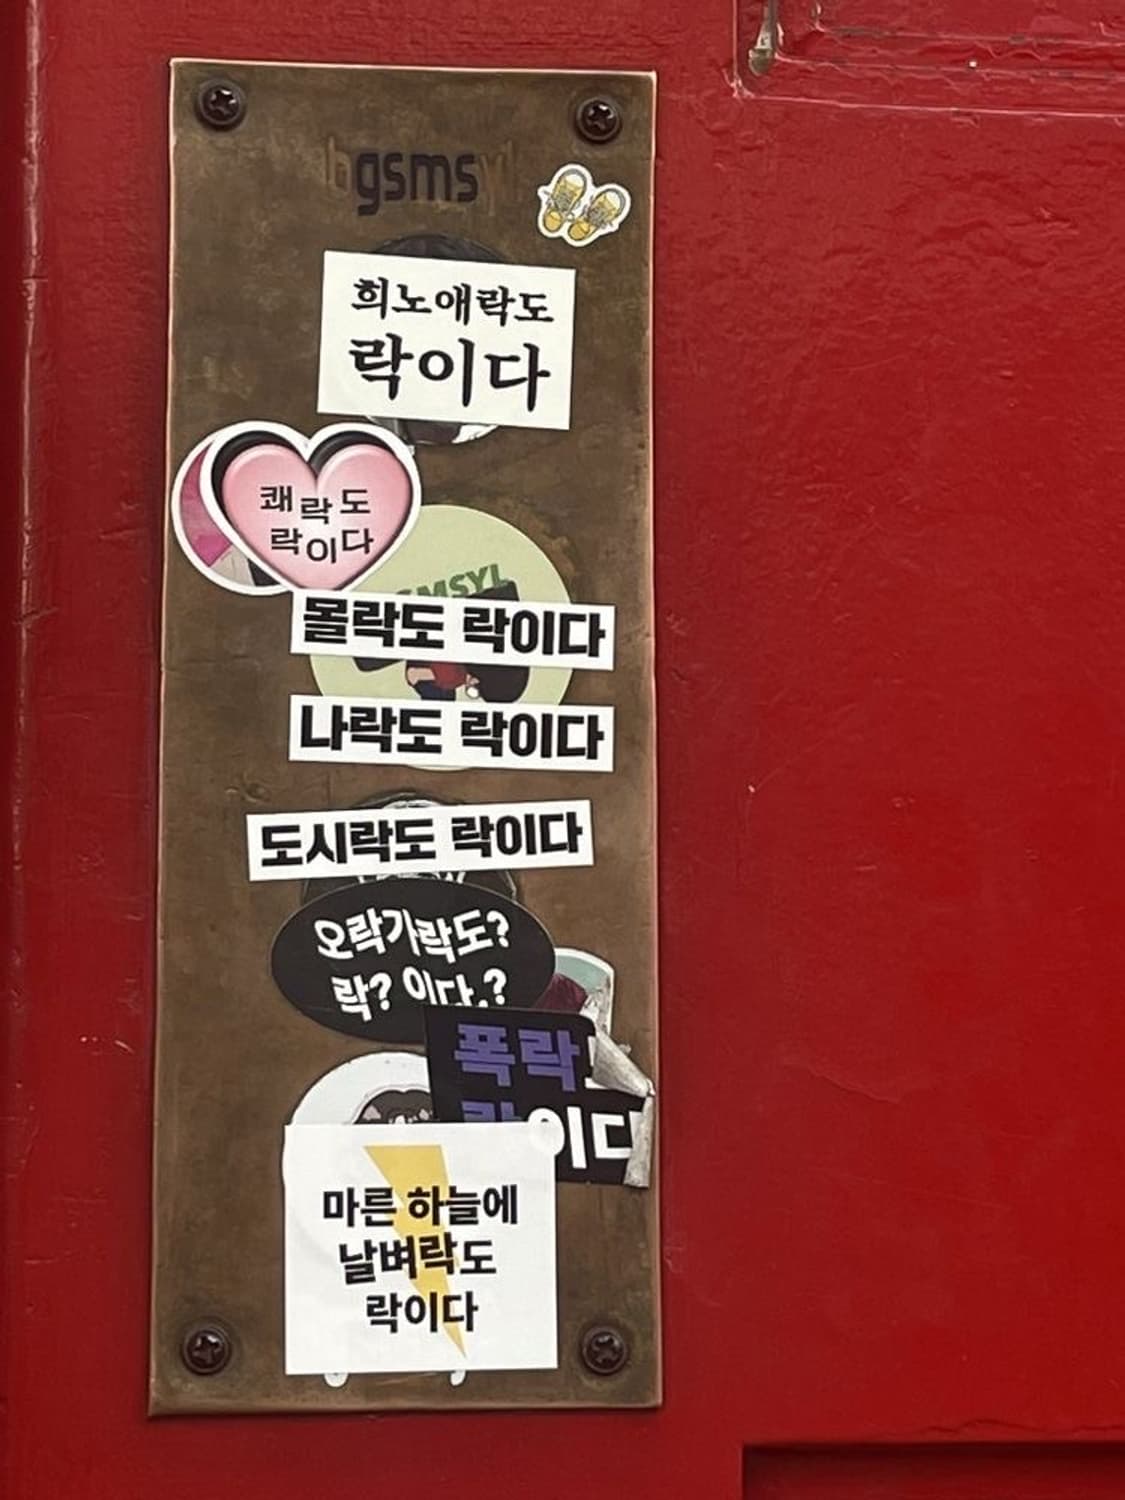 gsms
희노애락도
락이다
쾌락도
락이다
SMSYL
몰락도 락이다
나락도 락이다
도시락도 락이다
오락가락도?
락? 이다.?
폭락
락이다
마른 하늘에
날벼락도
락이다